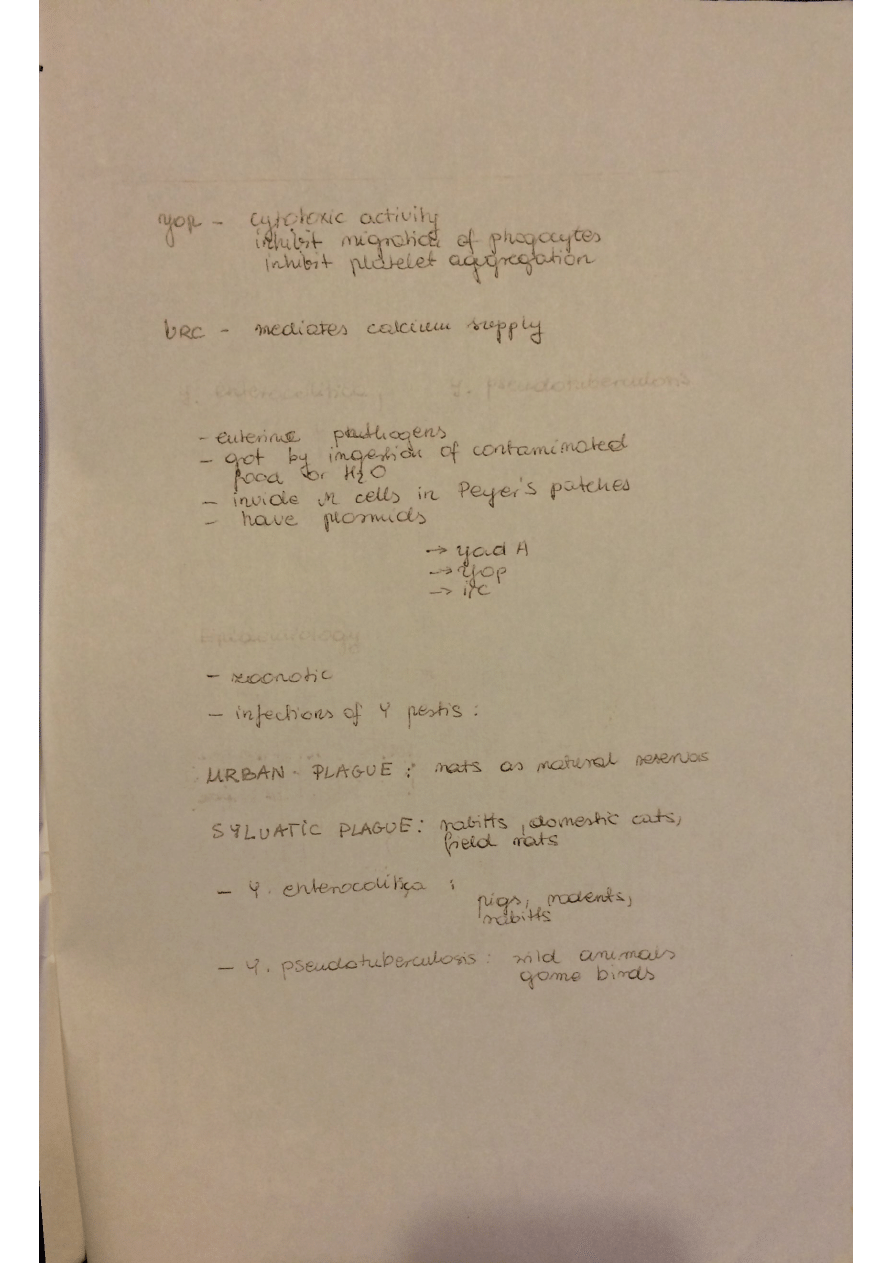 yop - cytotoxic activity
inhibit migration of phagocytes
inhibit platelet aggregation
VRC - mediates calcium supply
Y. enterocolitica, Y. pseudotuberculosis
- enterine pathogens
- got by ingestion of contaminated
food or H2O
- invide M cells in Peyer's patches
- have plasmids
→ yad A
→ yop
→
Epidemiology
- zoonotic
- infections of Y pestis :
URBAN PLAGUE : rats as natural reservois
SYLVATIC PLAGUE: rabitts, domestic cats,
field rats
- Y. enterocolitica :
pigs, rodents,
rabitts
- Y. pseudotuberculosis: wild animals
game birds